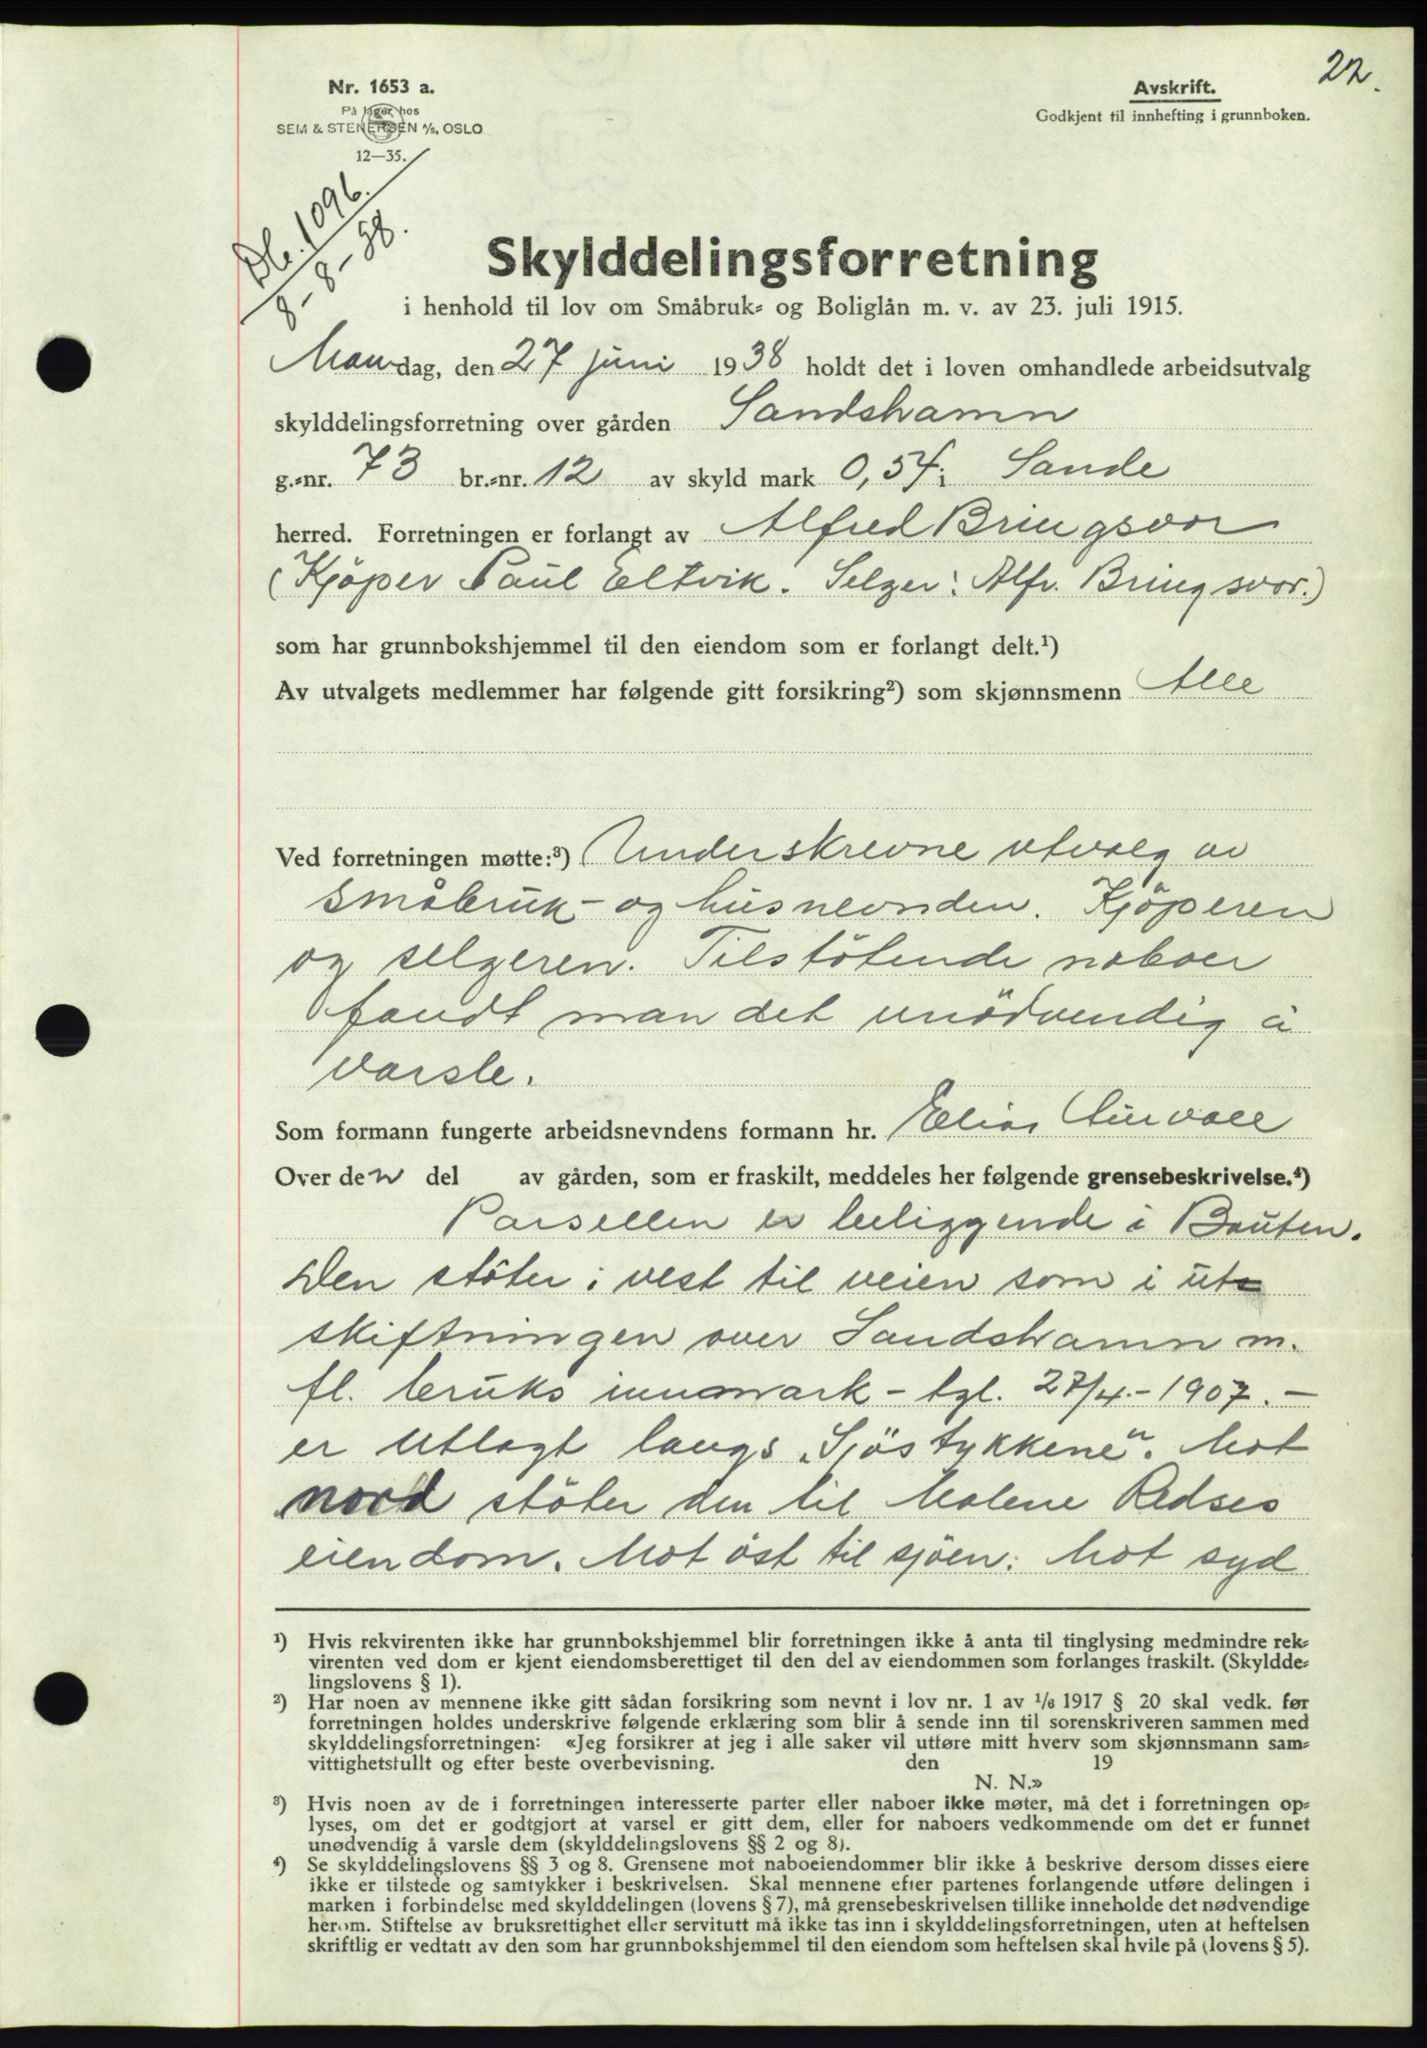 22.
Nr. 1653 a.
På lager hos
SEM & STENERSEN A/S, OSLO
12—35.
Avskrift.
Godkjent til innhefting i grunnboken.
Db. 1096.
8-8-38.
Skylddelingsforretning
i henhold til lov om Småbruk- og Boliglån m. v. av 23. juli 1915.
Mandag, den 27 juni 1938 holdt det i loven omhandlede arbeidsutvalg
skylddelingsforretning over gården Sandshamn
g.-nr. 73 br.-nr. 12 av skyld mark 0,54 i Sande
herred. Forretningen er forlangt av Alfred Bringsvor
(Kjöper Paul Eltvik. Selger: Alfr. Bringsvor.)
som har grunnbokshjemmel til den eiendom som er forlangt delt.¹)
Av utvalgets medlemmer har følgende gitt forsikring²) som skjønnsmenn Alle
Ved forretningen møtte:³) Underskrevne utvalg av
småbruk- og husnevnden. Kjöperen
og selgeren. Tilstötende naboer
fandt man det unödvendig å
varsle.
Som formann fungerte arbeidsnevndens formann hr. Elias Aurvoll
Over den del av gården, som er fraskilt, meddeles her følgende grensebeskrivelse.⁴)
Parsellen er beliggende i Bauten.
Den stöter i vest til veien som i ut-
skiftningen over Sandshamn m.
fl. bruks innmark - tgl. 27/4.-1907. -
er utlagt langs „Sjöstykkene". Mot
nord stöter den til Malene Redses
eiendom. Mot öst til sjöen. Mot syd
¹) Hvis rekvirenten ikke har grunnbokshjemmel blir forretningen ikke å anta til tinglysing medmindre rek-
virenten ved dom er kjent eiendomsberettiget til den del av eiendommen som forlanges fraskilt. (Skyldde-
lingslovens § 1).
²) Har noen av mennene ikke gitt sådan forsikring som nevnt i lov nr. 1 av 1/6 1917 § 20 skal vedk. før
forretningen holdes underskrive følgende erklæring som blir å sende inn til sorenskriveren sammen med
skylddelingsforretningen: «Jeg forsikrer at jeg i alle saker vil utføre mitt hverv som skjønnsmann sam-
vittighetsfullt og efter beste overbevisning. den 19
N. N.»
³) Hvis noen av de i forretningen interesserte parter eller naboer ikke møter, må det i forretningen op-
lyses, om det er godtgjort at varsel er gitt dem, eller for naboers vedkommende om det er funnet
unødvendig å varsle dem (skylddelingslovens §§ 2 og 8).
⁴) Se skylddelingslovens §§ 3 og 8. Grensene mot naboeiendommer blir ikke å beskrive dersom disses eiere
ikke er tilstede og samtykker i beskrivelsen. Skal mennene efter partenes forlangende utføre delingen i
marken i forbindelse med skylddelingen (lovens § 7), må grensebeskrivelsen tillike inneholde det nødvendige
herom. Stiftelse av bruksrettighet eller servitutt må ikke tas inn i skylddelingsforretningen, uten at heftelsen
skriftlig er vedtatt av den som har grunnbokshjemmel til den eiendom som heftelsen skal hvile på (lovens § 5).